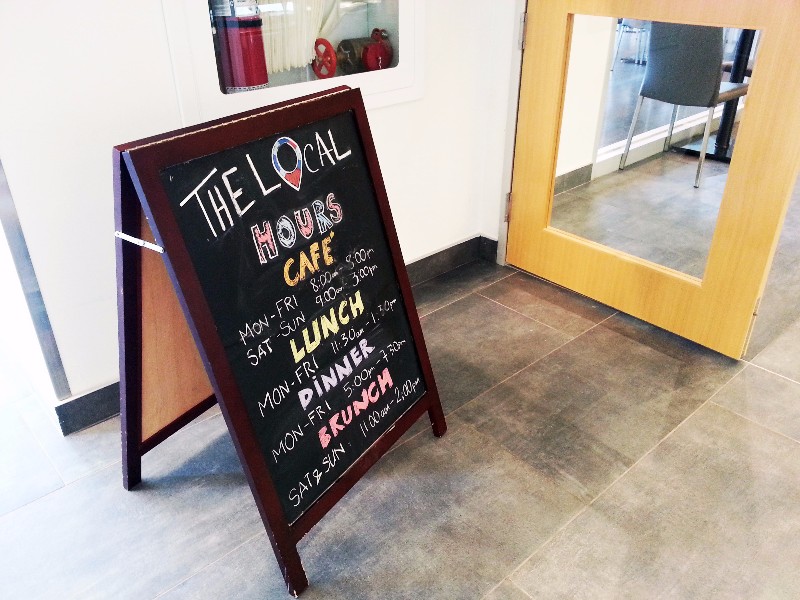 THE LOCAL
HOURS
CAFÉ
MON-FRI 8:00am-8:00pm
SAT-SUN 9:00am-3:00pm
LUNCH
MON-FRI 11:30am-1:30pm
DINNER
MON-FRI 5:00pm-7:30pm
BRUNCH
SAT & SUN: 11:00am-2:00pm